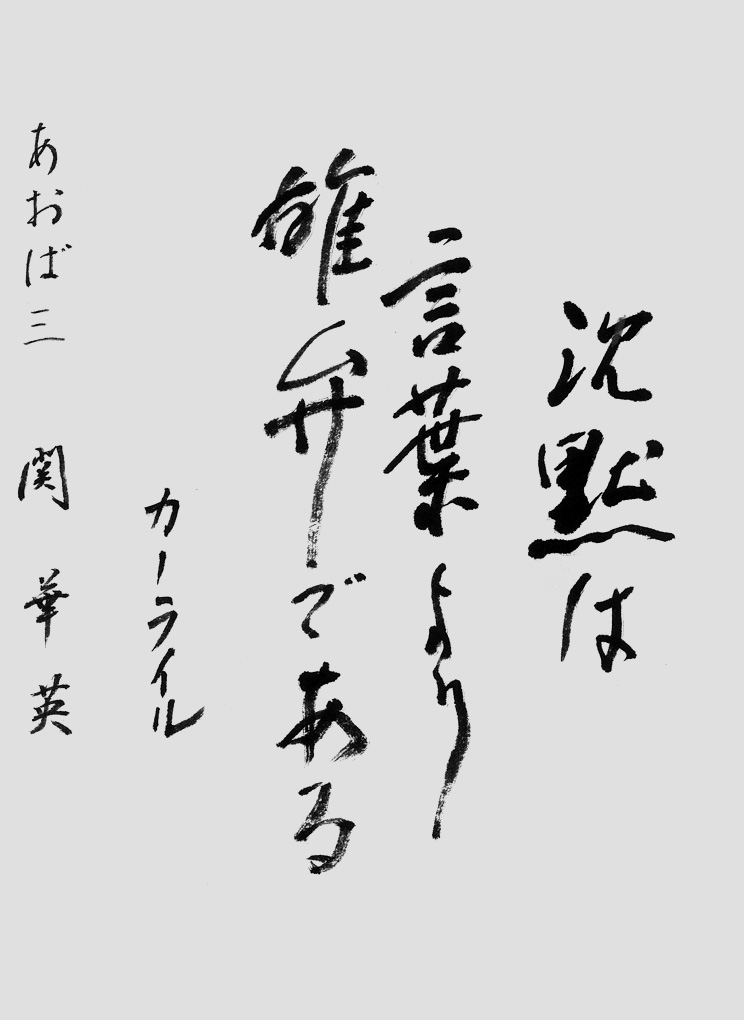 沈黙は
言葉より
雄弁である
カーライル
あおば三 関 華英